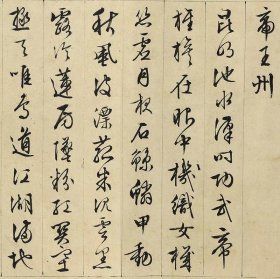 帝王州
昆明池水漢時功武帝
旌旗在眼中機織女機
絲虛月夜石鯨鱗甲動
秋風波漂菰米沉雲黑
露冷蓮房墜粉紅關塞
極天唯鳥道江湖滿地